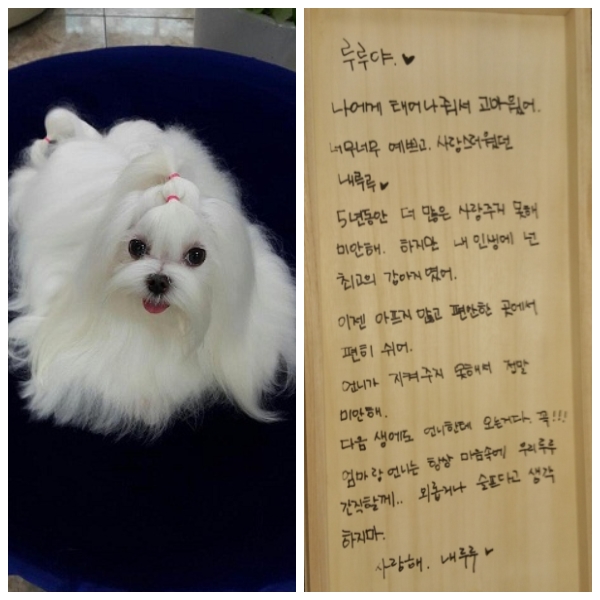 루루야.♥
나에게 태어나줘서 고마웠어.
너무너무 예쁘고. 사랑스러웠던
내루루♥
5년동안 더 많은 사랑주지 못해
미안해. 하지만 내 인생에 넌
최고의 강아지였어.
이젠 아프지 말고 편안한 곳에서
편히 쉬어.
언니가 지켜주지 못해서 정말
미안해.
다음 생에도 언니한테 오는거다. 꼭!!!
엄마랑 언니는 항상 마음속에 우리루루
간직할게.. 외롭거나 슬프다고 생각
하지마.
사랑해. 내루루♥